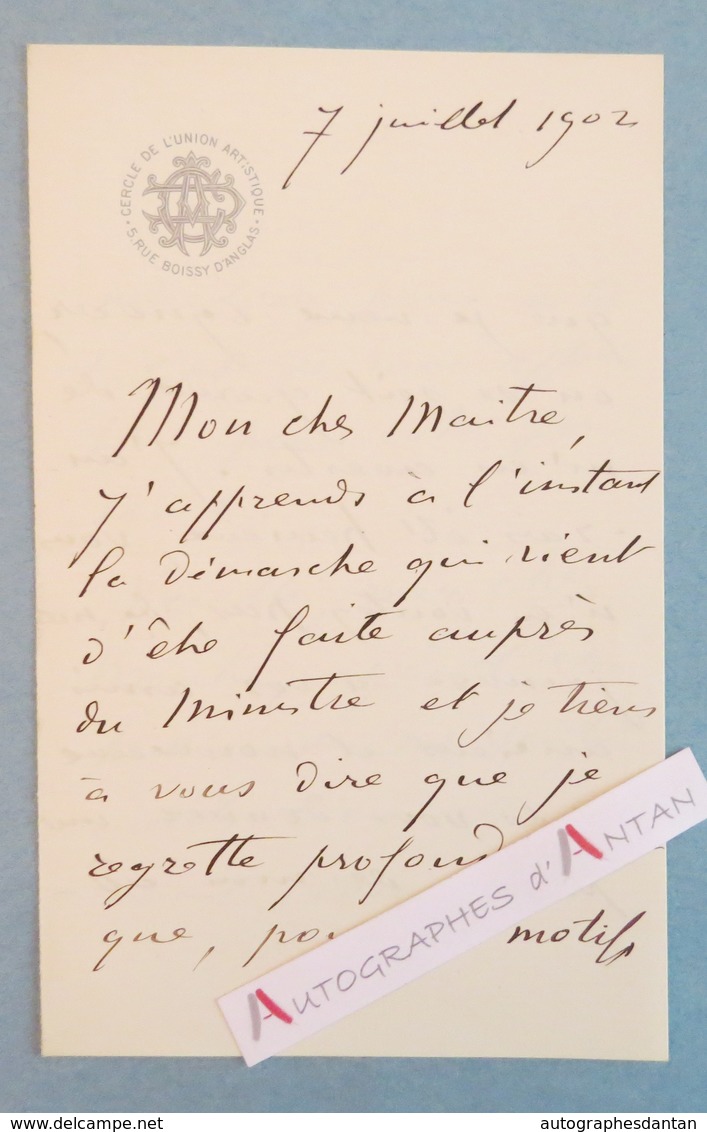 7 juillet 1902
CERCLE DE L'UNION ARTISTIQUE
5, RUE BOISSY D'ANGLAS
Mon cher Maitre,
J'apprends à l'instant
la démarche qui vient
d'être faite auprès
du Ministre et je tiens
à vous dire que je
regrette profond
que, pou motifs
AUTOGRAPHES d'ANTAN
delcampe.net
autographesdantan